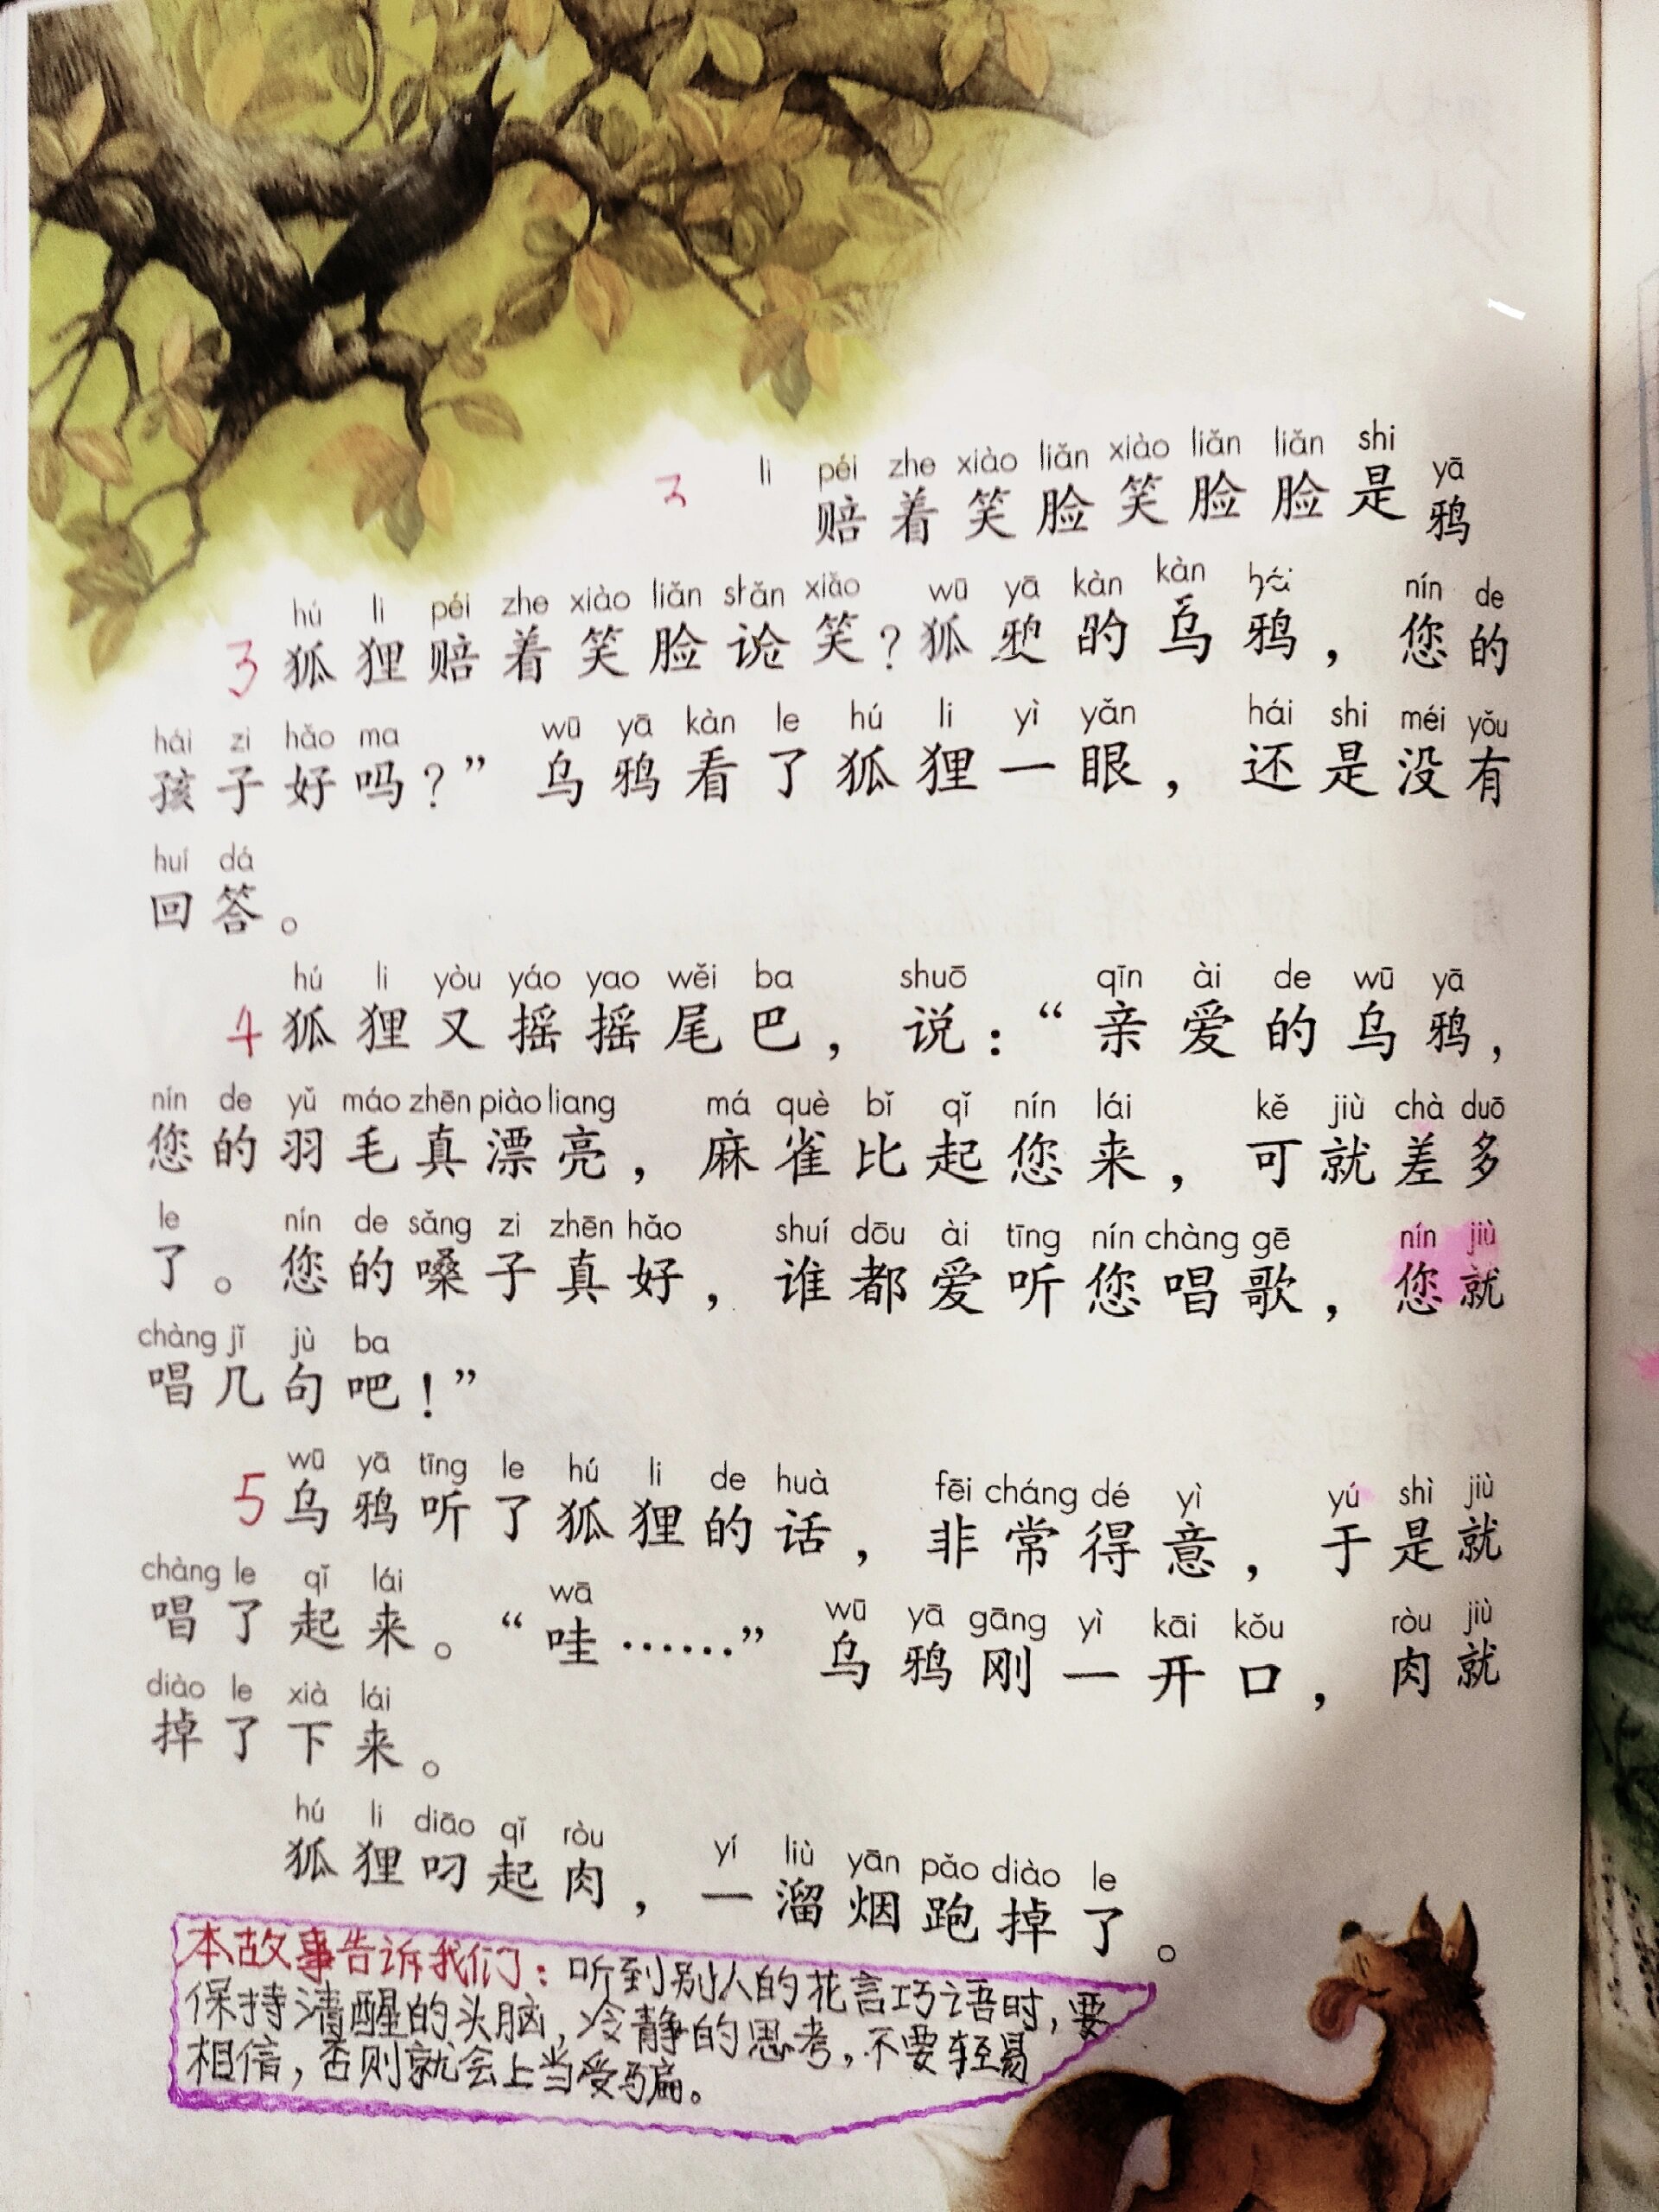 li péi zhe xiào liǎn xiào liǎn liǎn shi yā
3 赔着笑脸笑脸脸是鸦
hú li péi zhe xiào liǎn xiǎo wū yā kàn kàn nín de
3 狐狸赔着笑脸 笑？狐 的乌鸦，您的
hái zi hǎo ma wū yā kàn le hú li yì yǎn hái shi méi yǒu
孩子好吗？”乌鸦看了狐狸一眼，还是没有
huí dá
回答。
hú li yòu yáo yao wěi ba shuō qīn ài de wū yā
4 狐狸又摇摇尾巴，说：“亲爱的乌鸦，
nín de yǔ máo zhēn piào liang má què bǐ qǐ nín lái kě jiù chà duō
您的羽毛真漂亮，麻雀比起您来，可就差多
le nín de sǎng zi zhēn hǎo shuí dōu ài tīng nín chàng gē nín jiù
了。您的嗓子真好，谁都爱听您唱歌，您就
chàng jǐ jù ba
唱几句吧！”
wū yā tīng le hú li de huà fēi cháng dé yì yú shì jiù
5 乌鸦听了狐狸的话，非常得意，于是就
chàng le qǐ lái wā wū yā gāng yì kāi kǒu ròu jiù
唱了起来。“哇……”乌鸦刚一开口，肉就
diào le xià lái
掉了下来。
hú li diāo qǐ ròu yí liù yān pǎo diào le
狐狸叼起肉，一溜烟跑掉了。
本故事告诉我们：听到别人的花言巧语时，要
保持清醒的头脑，冷静的思考，不要轻易
相信，否则就会上当受骗。